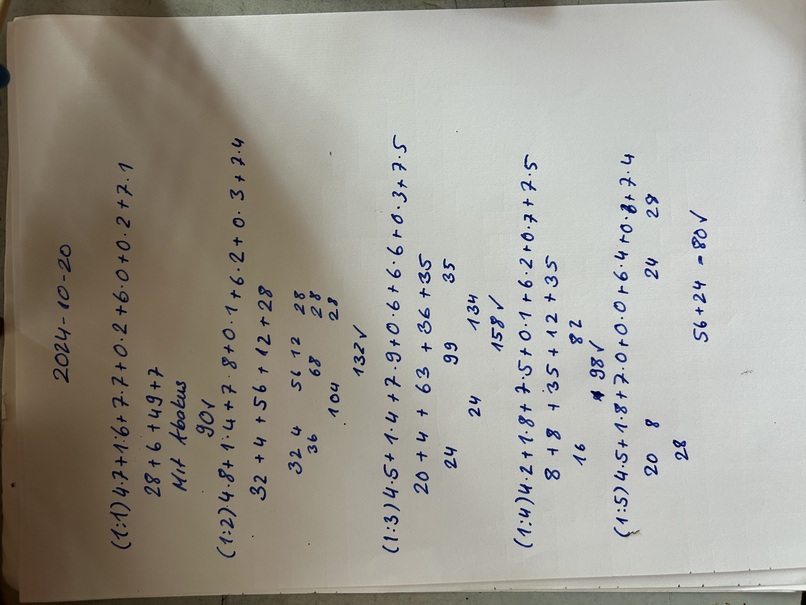 2024-10-20
(1:1) 4·7+1·6+7·7+0·2+6·0+0·2+7·1
28+6+49+7
Mit Abakus
90✓
(1:2) 4·8+1·4+7·8+0·1+6·2+0·3+7·4
32+4+56+12+28
32 4 56 12 28
36 68 28
104 28
132✓
(1:3) 4·5+1·4+7·9+0·6+6·6+0·3+7·5
20+4+63+36+35
24 99 35
24 134
158✓
(1:4) 4·2+1·8+7·5+0·1+6·2+0·7+7·5
8+8+35+12+35
16 82
98✓
(1:5) 4·5+1·8+7·0+0·0+6·4+0·8+7·4
20 8 24 28
28
56+24 =80✓